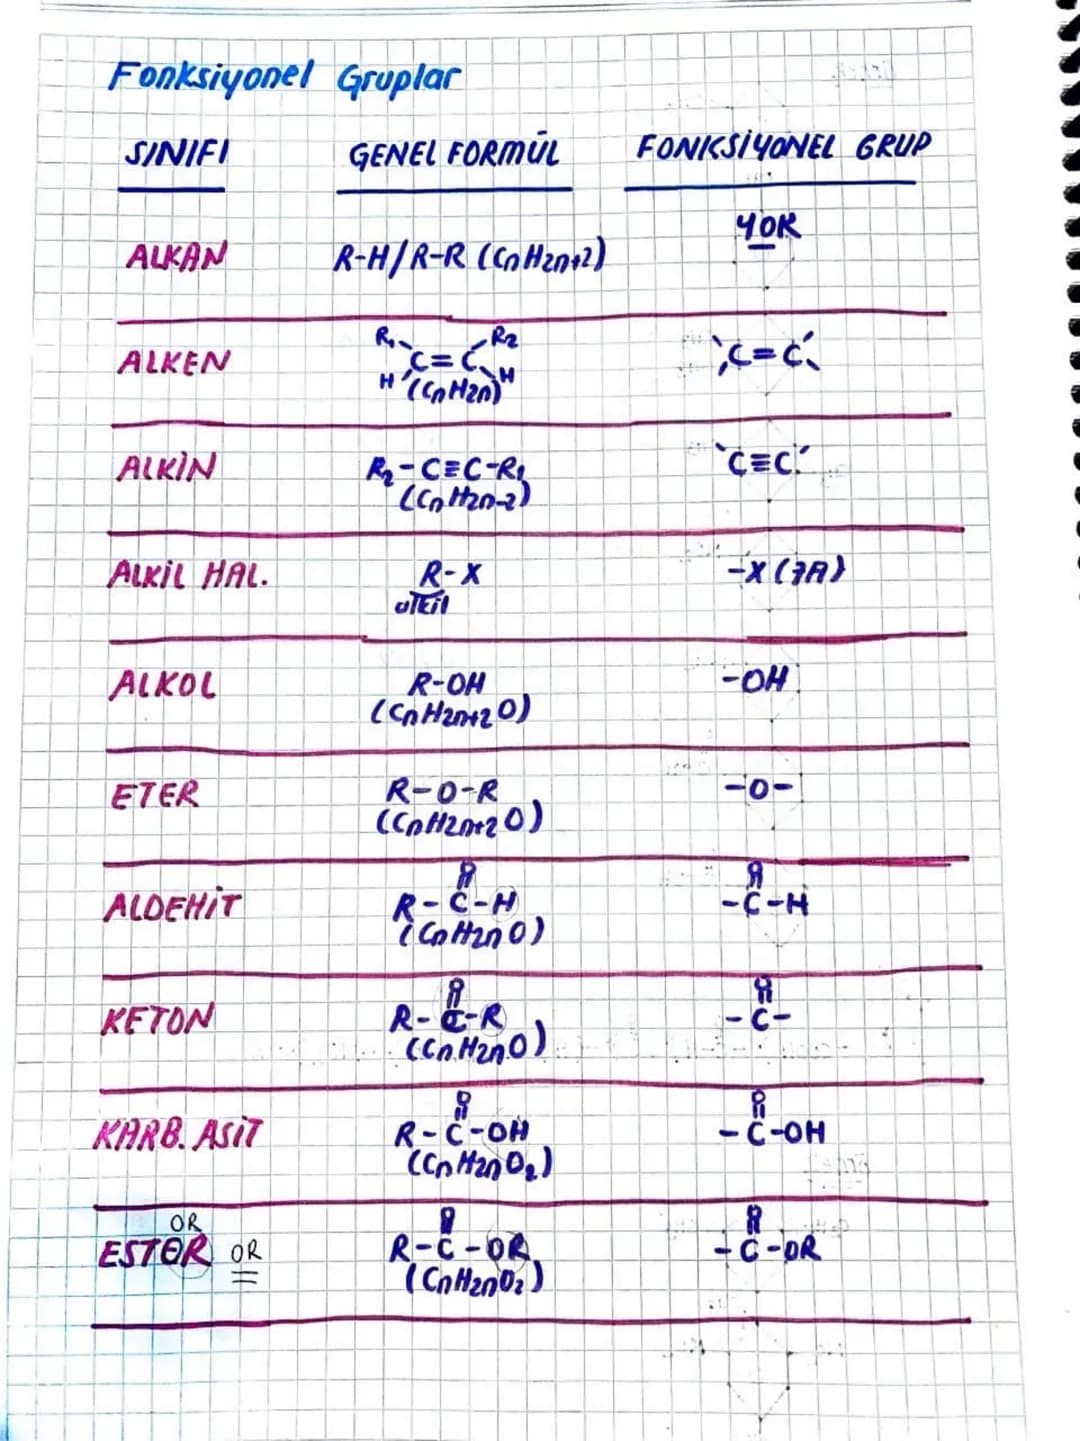 Fonksiyonel Gruplar
SINIFI GENEL FORMÜL FONKSİYONEL GRUP
YOK
ALKAN R-H/R-R (CnH2n+2)
R1 R2
ALKEN C=C C=C
H (CnH2n) H
ALKİN R2-C≡C-R1 C≡C
(CnH2n-2)
ALKİL HAL. R-X -X (7A)
ALKOL R-OH -OH
(CnH2n+2O)
ETER R-O-R -O-
(CnH2n+2O)
O O
ALDEHİT R-C-H -C-H
(CnH2nO)
O O
KETON R-C-R -C-
(CnH2nO)
O O
KARB. ASİT R-C-OH -C-OH
(CnH2nO2)
OR O O
ESTER OR R-C-OR -C-OR
(CnH2nO2)